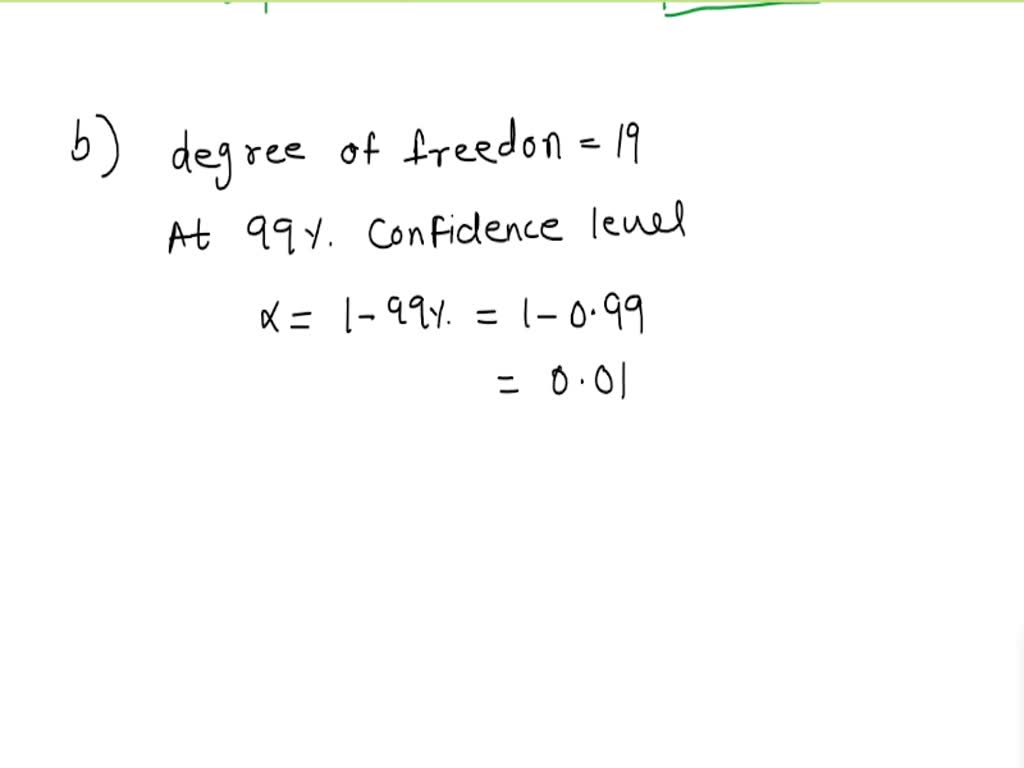 b) degree of freedon = 19
At 99%. Confidence level
α = 1 - 99%. = 1 - 0.99
= 0.01